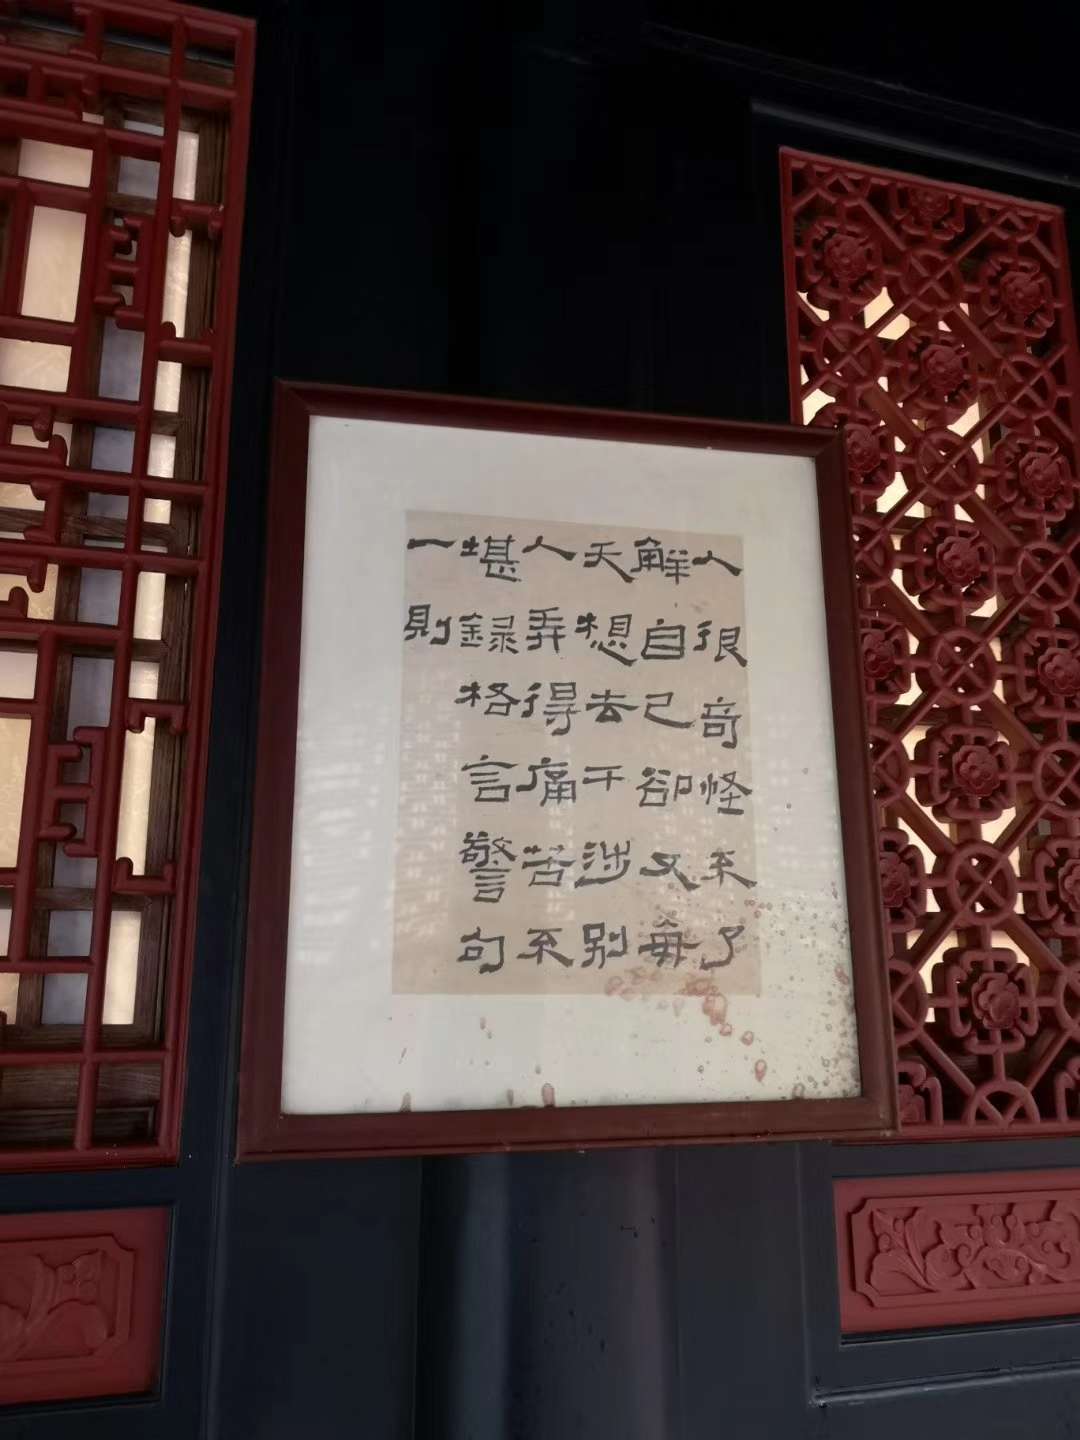 人很竒怪不了
觧自己卻又每
天想去干涉别
人弄得痛苦不
堪録格言警句
一則